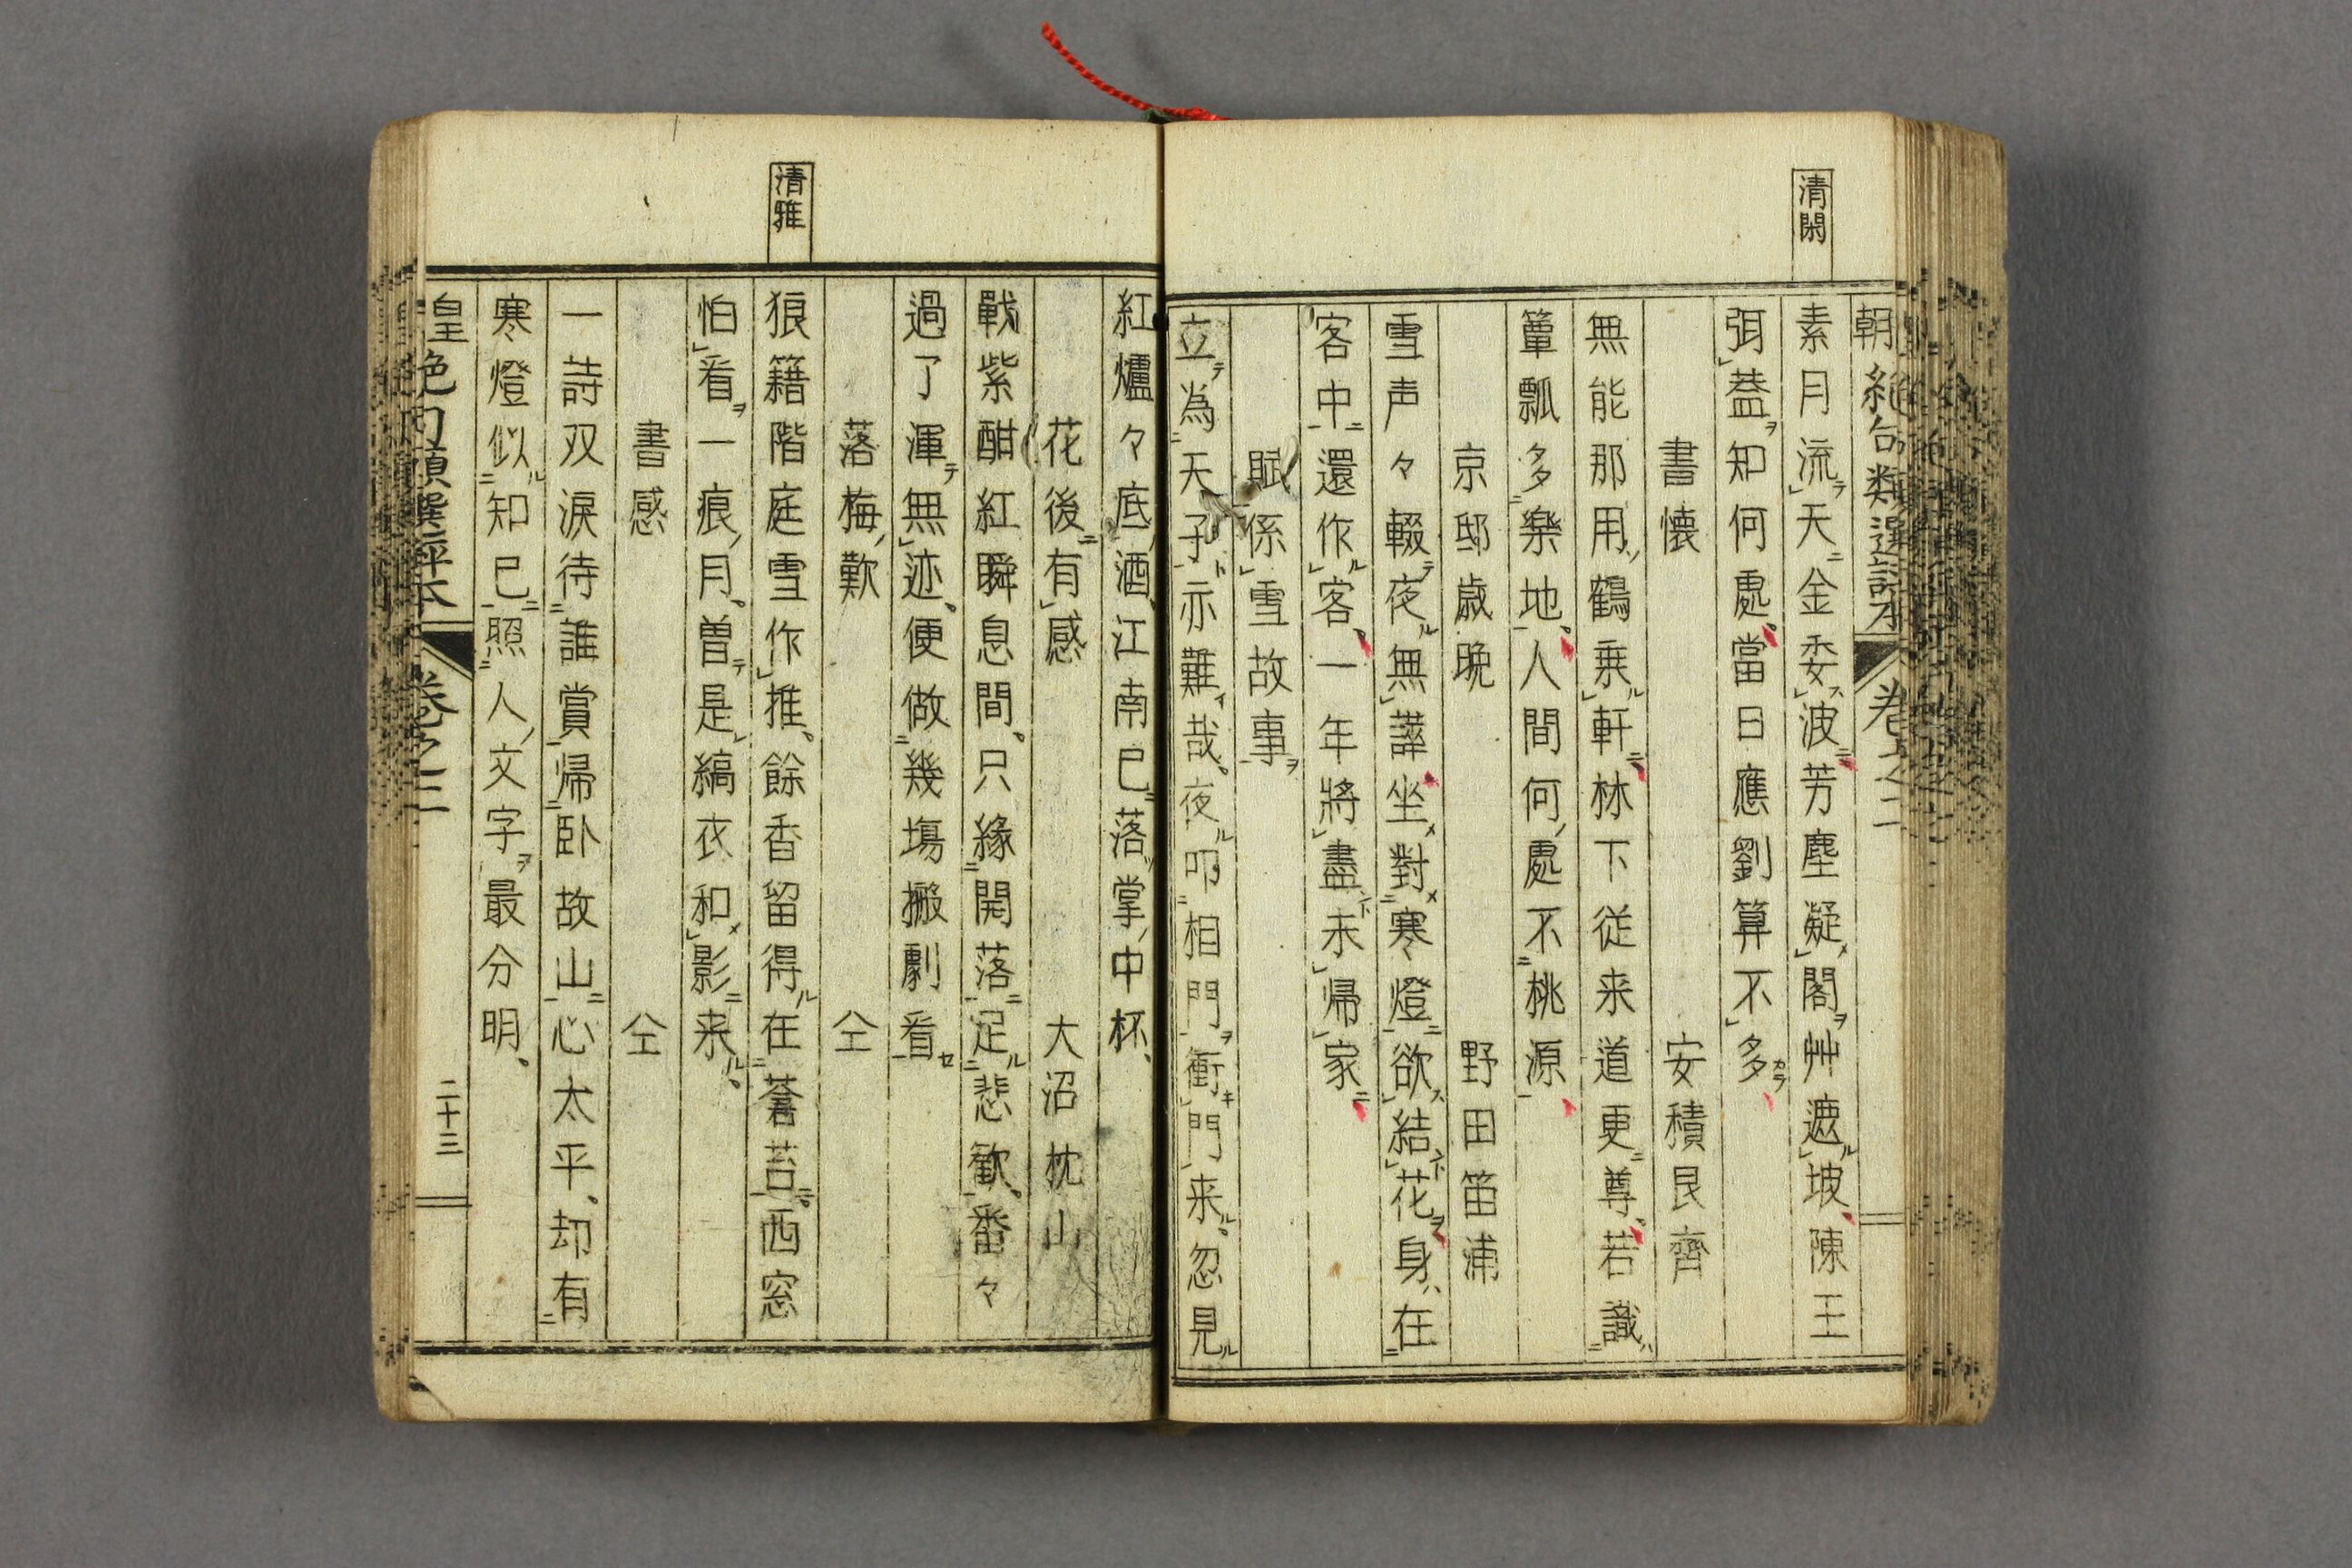 清閑
朝絶句類選評本 卷之二
素月流天金委波芳塵凝閣艸遮坡陳王
弭葢知何處當日應劉算不多
書懐 安積艮齊
無能那用鶴乗軒林下従来道更尊若識
簞瓢多樂地人間何處不桃源
京邸歳晩 野田笛浦
雪声々輟夜無譁坐對寒燈欲結花身在
客中還作客一年將盡未帰家
賦係雪故事
立為天子亦難哉夜叩相門衝門来忽見
清雅
紅爐々底酒江南已落掌中杯
花後有感 大沼枕山
戰紫酣紅瞬息間只緣開落足悲歓番々
過了渾無迹便做幾塲搬劇看
落梅歎 仝
狼籍階庭雪作推餘香留得在蒼苔西窓
怕看一痕月曽是縞衣和影来
書感 仝
一詩双涙待誰賞帰卧故山心太平却有
寒燈似知已照人文字最分明
皇 絶句類選評本 卷之三 二十三